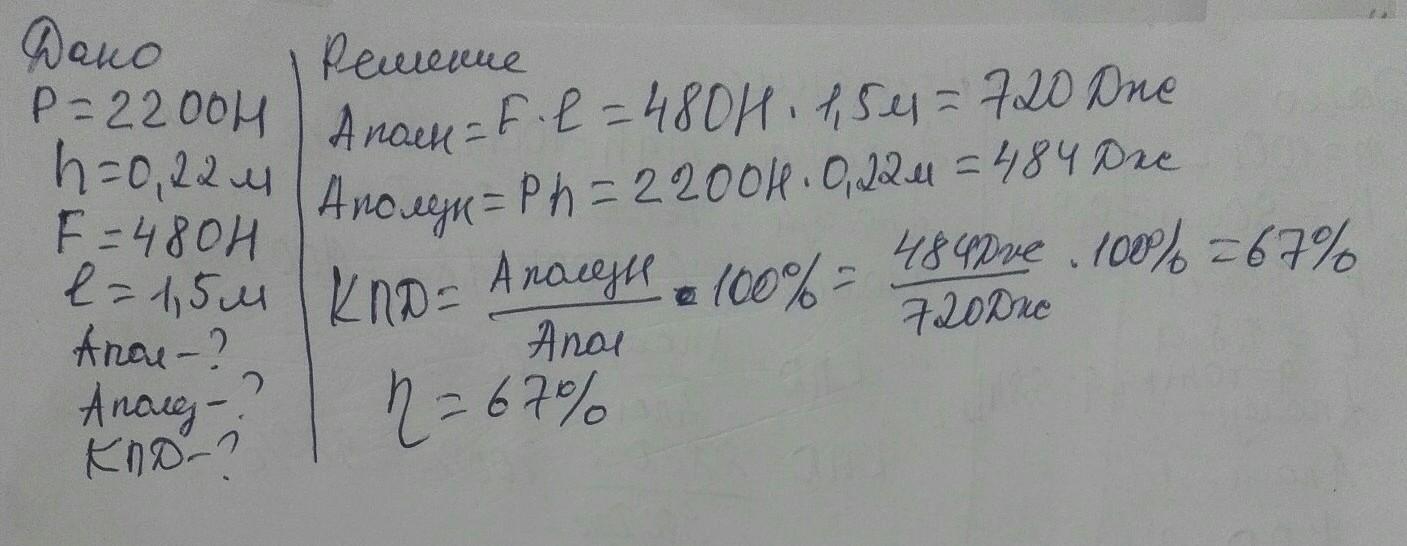 Дано
P = 2200Н
h = 0,22 м
F = 480Н
l = 1,5 м
Апол - ?
Аполез - ?
КПД - ?
Решение
Аполн = F · l = 480Н · 1,5м = 720 Дж
Аполезн = Ph = 2200Н · 0,22м = 484 Дж
КПД = Аполезн / Апол · 100% = 484Дж / 720Дж · 100% = 67%
η = 67%